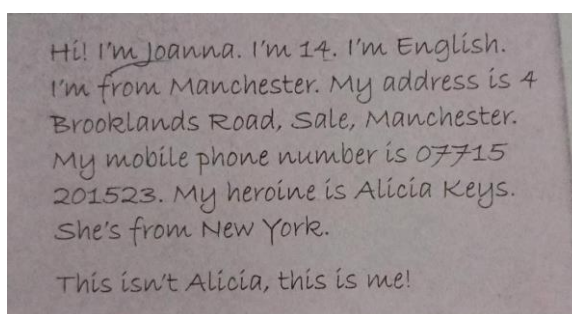 Hi! I'm Joanna. I'm 14. I'm English.
I'm from Manchester. My address is 4
Brooklands Road, Sale, Manchester.
My mobile phone number is 07715
201523. My heroine is Alicia Keys.
She's from New York.
This isn't Alicia, this is me!